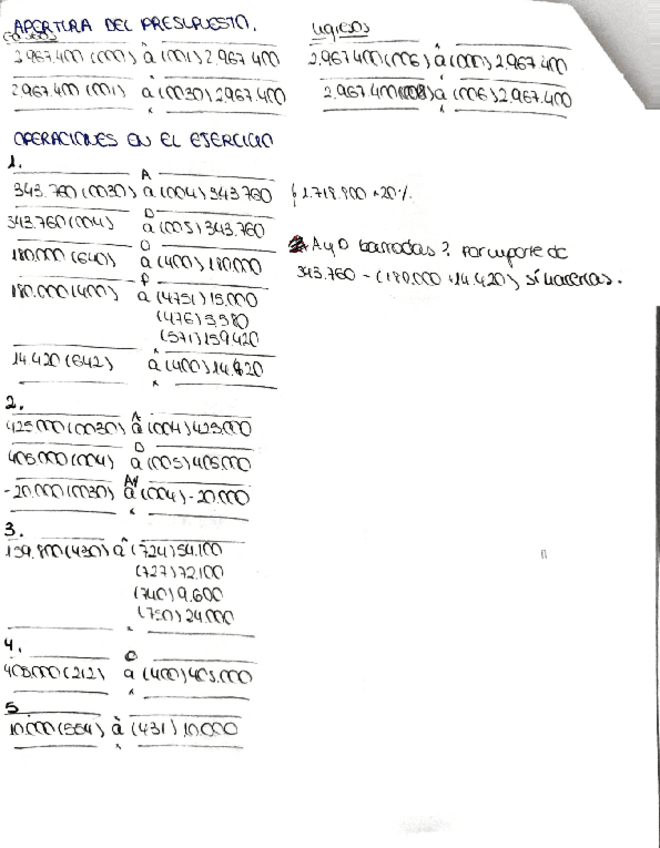 APERTURA DEL PRESUPUESTO.
Gastos
2.967.400 (000) a (001) 2.967.400
2.967.400 (001) a (0030) 2.967.400
Ingresos
2.967.400 (006) a (000) 2.967.400
2.967.400 (008) a (006) 2.967.400
OPERACIONES EN EL EJERCICIO
1.
A
343.760 (0030) a (004) 343.760
D
343.760 (004) a (005) 343.760
O
180.000 (640) a (400) 180.000
P
180.000 (400) a (4751) 15.000
(476) 5.580
(571) 159.420
14.420 (642) a (400) 14.420
1.718.800 × 20%.
A y D barradas? Por importe de
343.760 - (180.000 + 14.420) sí
2.
A
425.000 (0030) a (004) 425.000
D
405.000 (004) a (005) 405.000
A/
-20.000 (0030) a (004) -20.000
3.
159.800 (430) a (724) 54.100
(727) 72.100
(740) 9.600
(750) 24.000
4.
O
405.000 (212) a (400) 405.000
5
10.000 (554) a (431) 10.000